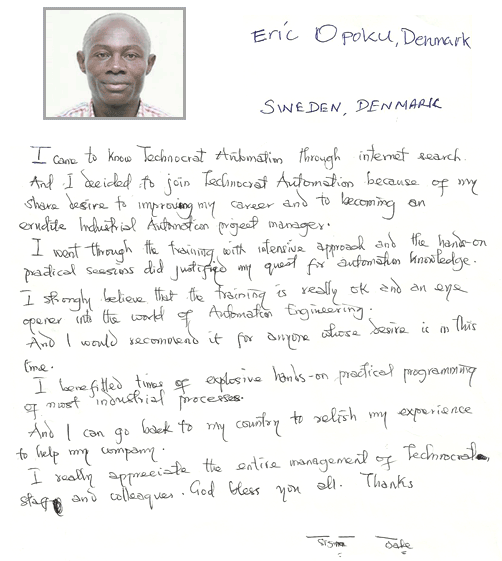 Eric Opoku, Denmark
SWEDEN, DENMARK
I came to know Technocrat Automation through internet search.
And I decided to join Technocrat Automation because of my
share desire to improving my career and to becoming an
erudite Industrial Automation project manager.
I went through the training with intensive approach and the hands-on
practical sessions did justified my quest for automation knowledge.
I strongly believe that the training is really ok and an eye
opener into the world of Automation Engineering.
And I would recommend it for anyone whose desire is in this
line.
I benefitted times of explosive hands-on practical programming
of most industrial processes.
And I can go back to my country to relish my experience
to help my company.
I really appreciate the entire management of Technocrat,
staff and colleagues. God bless you all. Thanks
Sign Date